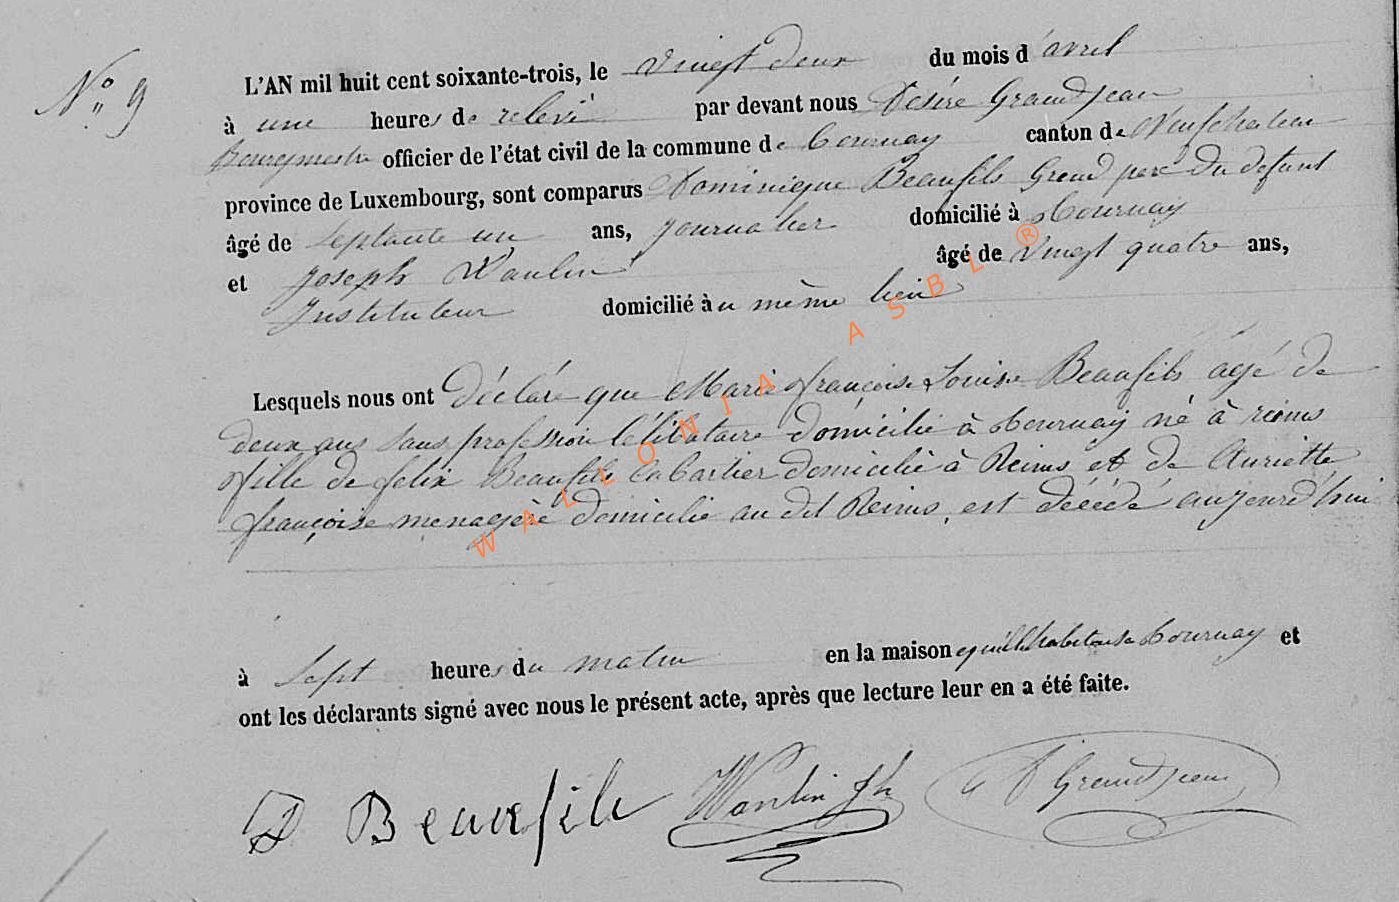 N° 9
L'AN mil huit cent soixante-trois, le vingt deux du mois d'avril
à une heures de relevé par devant nous Désiré Grandjean
Bourgmestre officier de l'état civil de la commune de Tournay canton de Neufchateau
province de Luxembourg, sont comparus Dominique Beaufils Grand pere du defunt
âgé de septante un ans, journalier domicilié à Tournay
et joseph Wanlin âgé de vingt quatre ans,
Instituteur domicilié àu même lieu
Lesquels nous ont déclaré que Marie françoise Louise Beaufils agé de
deux ans sans profession Célibataire domicilié à Tournay né à reims
fille de felix Beaufils Cabartier domicilié à Reims et de Auriette
françoise menagère domicilié au dit Reims, est décédé aujourd'hui
à Sept heures du matin en la maison qu'ill habitons à Tournay et
ont les déclarants signé avec nous le présent acte, après que lecture leur en a été faite.
D Beaufils Wanlin Jh D Grandjean
WALLONIA ASBL ®